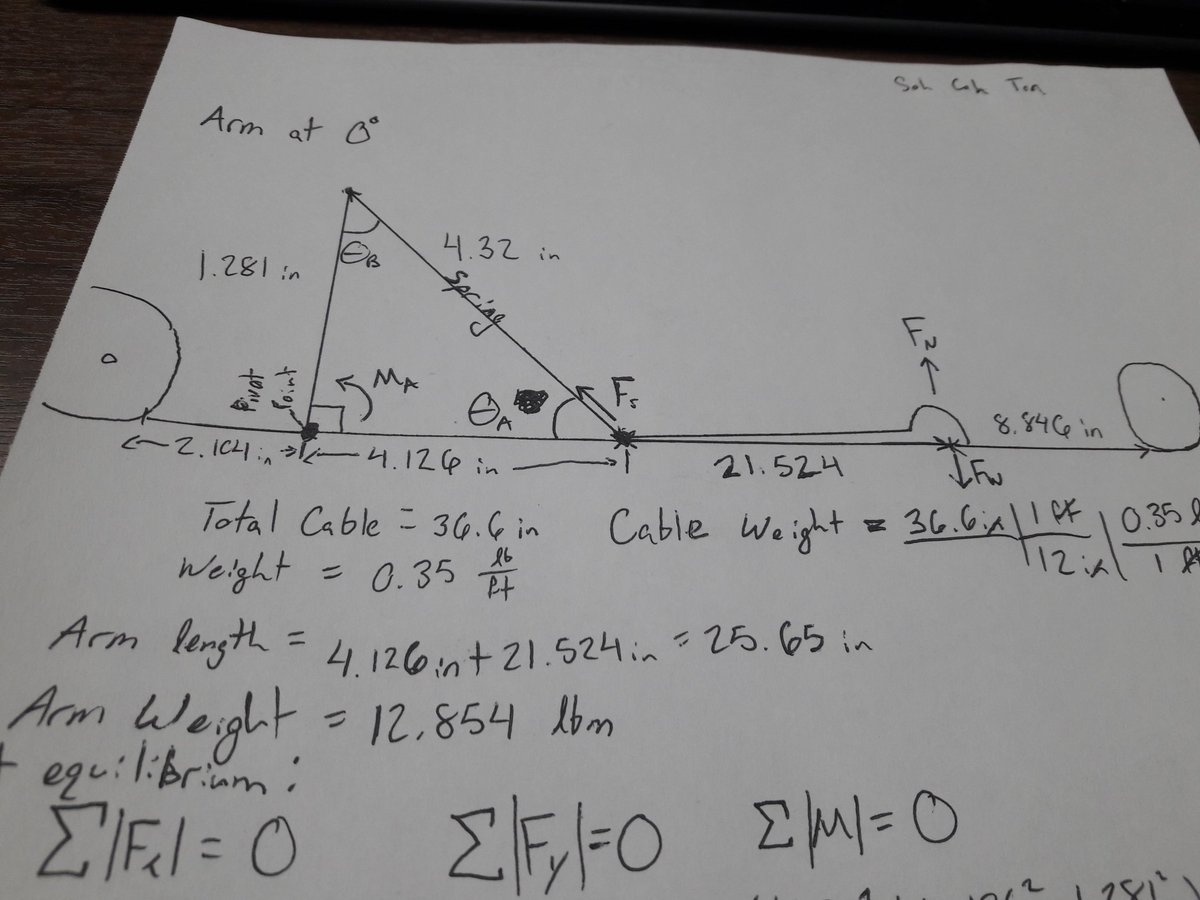 Soh Cah Toa
Arm at 0°
1.281 in
θB
4.32 in
Spring
Pivot Point
MA
θA
Fs
FN
8.846 in
2.104 in
4.126 in
21.524
FW
Total Cable = 36.6 in
Cable Weight = 36.6 in | 1 ft | 0.35
12 in | 1
Weight = 0.35 lb/ft
Arm length = 4.126 in + 21.524 in = 25.65 in
Arm Weight = 12.854 lbm
equilibrium:
Σ|Fx| = 0 Σ|Fy| = 0 Σ|M| = 0